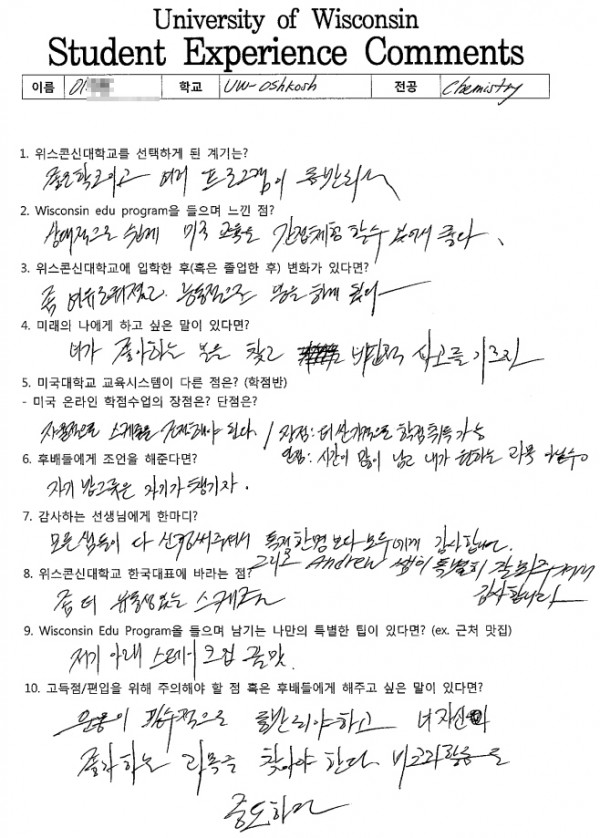 University of Wisconsin
Student Experience Comments
이름 이 학교 UW-Oshkosh 전공 Chemistry
1. 위스콘신대학교를 선택하게 된 계기는?
좋은학교이고 여러 프로그램이 동반되서
2. Wisconsin edu program을 들으며 느낀 점?
상대적으로 쉽게 미국 교육을 간접체험 할수 있어서 좋다.
3. 위스콘신대학교에 입학한 후(혹은 졸업한 후) 변화가 있다면?
좀 여유로워졌고. 능동적으로 일을 하게 됐다
4. 미래의 나에게 하고 싶은 말이 있다면?
너가 좋아하는 것을 찾고 비판적 사고를 기르자
5. 미국대학교 교육시스템이 다른 점은? (학점반)
- 미국 온라인 학점수업의 장점은? 단점은?
자율적으로 스케쥴을 조정해야 된다. / 장점: 더 쉽게 학점취득 가능
단점: 시간이 많이 남고 내가 원하는 과목
6. 후배들에게 조언을 해준다면?
자기 밥그릇은 자기가 챙기자.
7. 감사하는 선생님에게 한마디?
모든 쌤들이 다 신경써주셔서 특정한명보다 모두에게 감사합니다
그리고 Andrew 쌤이 특별히 잘 봐주셔서
감사합니다
8. 위스콘신대학교 한국대표에 바라는 점?
좀 더 유동성있는 스케쥴
9. Wisconsin Edu Program을 들으며 남기는 나만의 특별한 팁이 있다면? (ex. 근처 맛집)
저기 아래 스테이크집 꿀맛.
10. 고득점/편입을 위해 주의해야 할 점 혹은 후배들에게 해주고 싶은 말이 있다면?
운동이 필수적으로 동반되야하고 너 자신이
좋아하는 과목을 찾아야 한다. 비교과활동을
중요하다